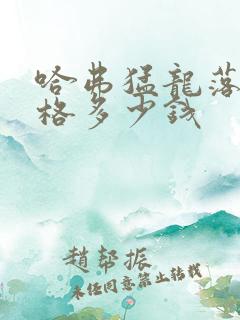 哈弗猛龍落
格多少錢
趙幫振
未經同意禁止轉載